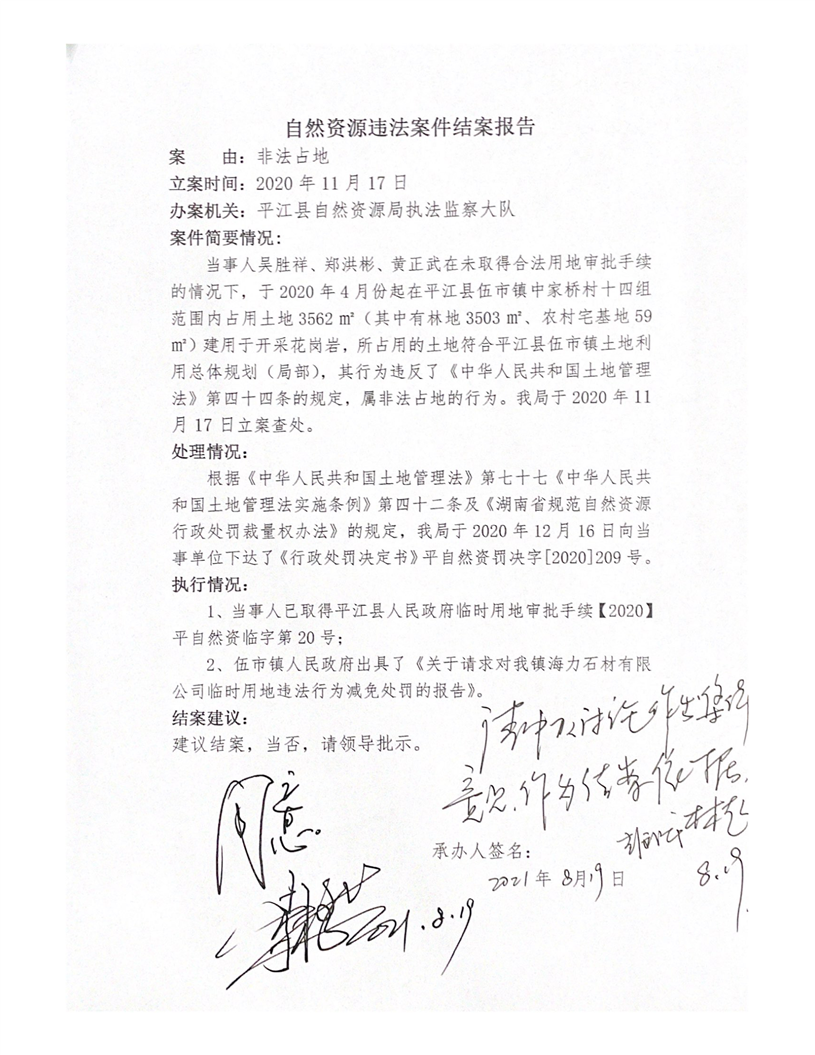 自然资源违法案件结案报告
案　　由：非法占地
立案时间：2020 年 11 月 17 日
办案机关：平江县自然资源局执法监察大队
案件简要情况：
当事人吴胜祥、郑洪彬、黄正武在未取得合法用地审批手续
的情况下，于 2020 年 4 月份起在平江县伍市镇中家桥村十四组
范围内占用土地 3562 ㎡（其中有林地 3503 ㎡、农村宅基地 59
㎡）建用于开采花岗岩，所占用的土地符合平江县伍市镇土地利
用总体规划（局部），其行为违反了《中华人民共和国土地管理
法》第四十四条的规定，属非法占地的行为。我局于 2020 年 11
月 17 日立案查处。
处理情况：
根据《中华人民共和国土地管理法》第七十七《中华人民共
和国土地管理法实施条例》第四十二条及《湖南省规范自然资源
行政处罚裁量权办法》的规定，我局于 2020 年 12 月 16 日向当
事单位下达了《行政处罚决定书》平自然资罚决字[2020]209 号。
执行情况：
1、当事人已取得平江县人民政府临时用地审批手续【2020】
平自然资临字第 20 号；
2、伍市镇人民政府出具了《关于请求对我镇海力石材有限
公司临时用地违法行为减免处罚的报告》。
结案建议：
建议结案，当否，请领导批示。
请中队讨论作出集体
意见，作为结案依据。
8.19
同意。
2021.8.19
承办人签名：
2021 年 8 月 19 日